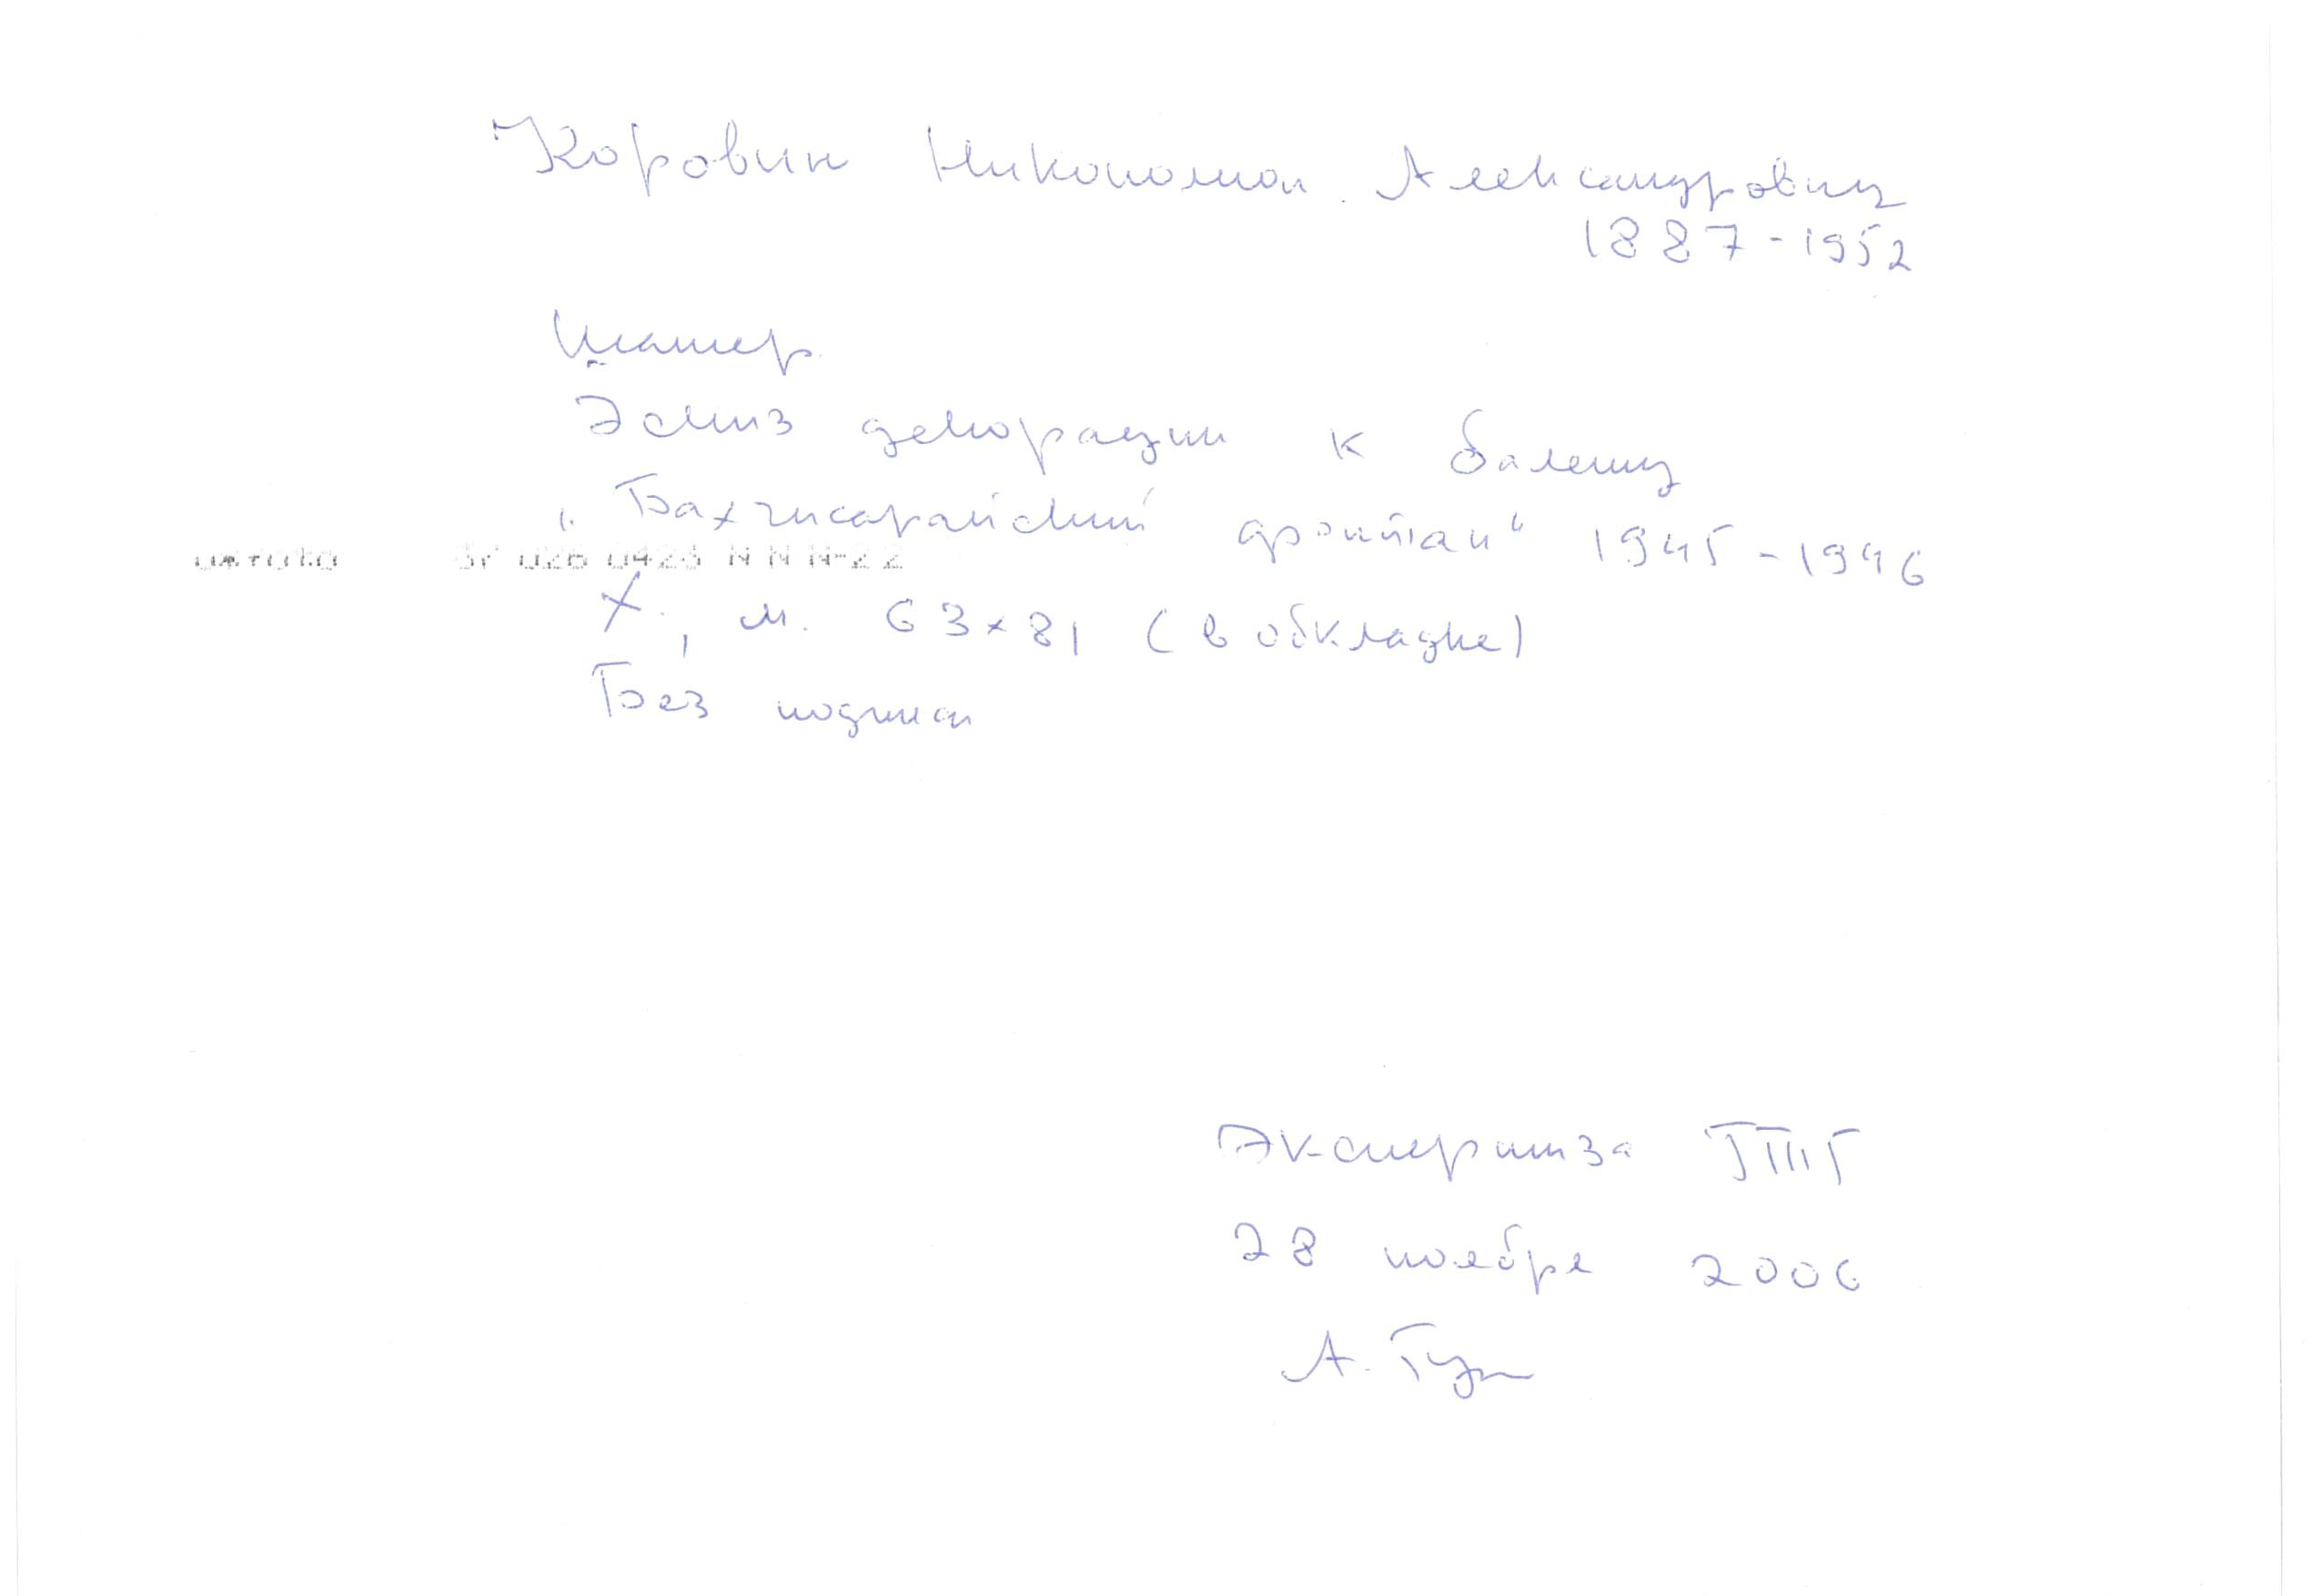 Коровин Никополион Александрович
1887-1952
Шатер
Эскиз декорации к балету
"Бахчисарайский фонтан" 1945-1946
Х., м. 63×81 (в обкладке)
Без подписи
Экспертиза ГТГ
28 ноября 2006
А. Гу